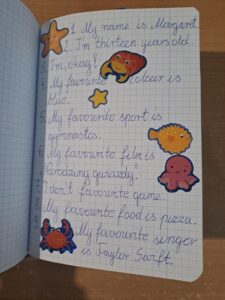 1. My name is Margant.
2. I'm thirteen years old.
I'm okay!
My favourite colour is
blue.
My favourite sport is
gymnastics.
My favourite film is
I don't favourite game.
My favourite food is pizza.
My favourite singer
is Taylor Swift.